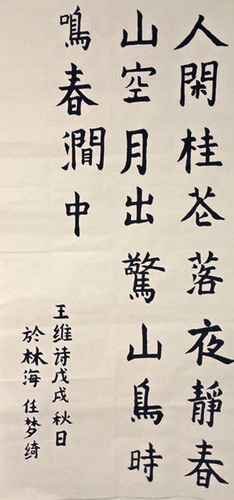 人閑桂花落夜靜春
山空月出驚山鳥時
鳴春澗中
王维诗戊戌秋日
於林海任梦绮